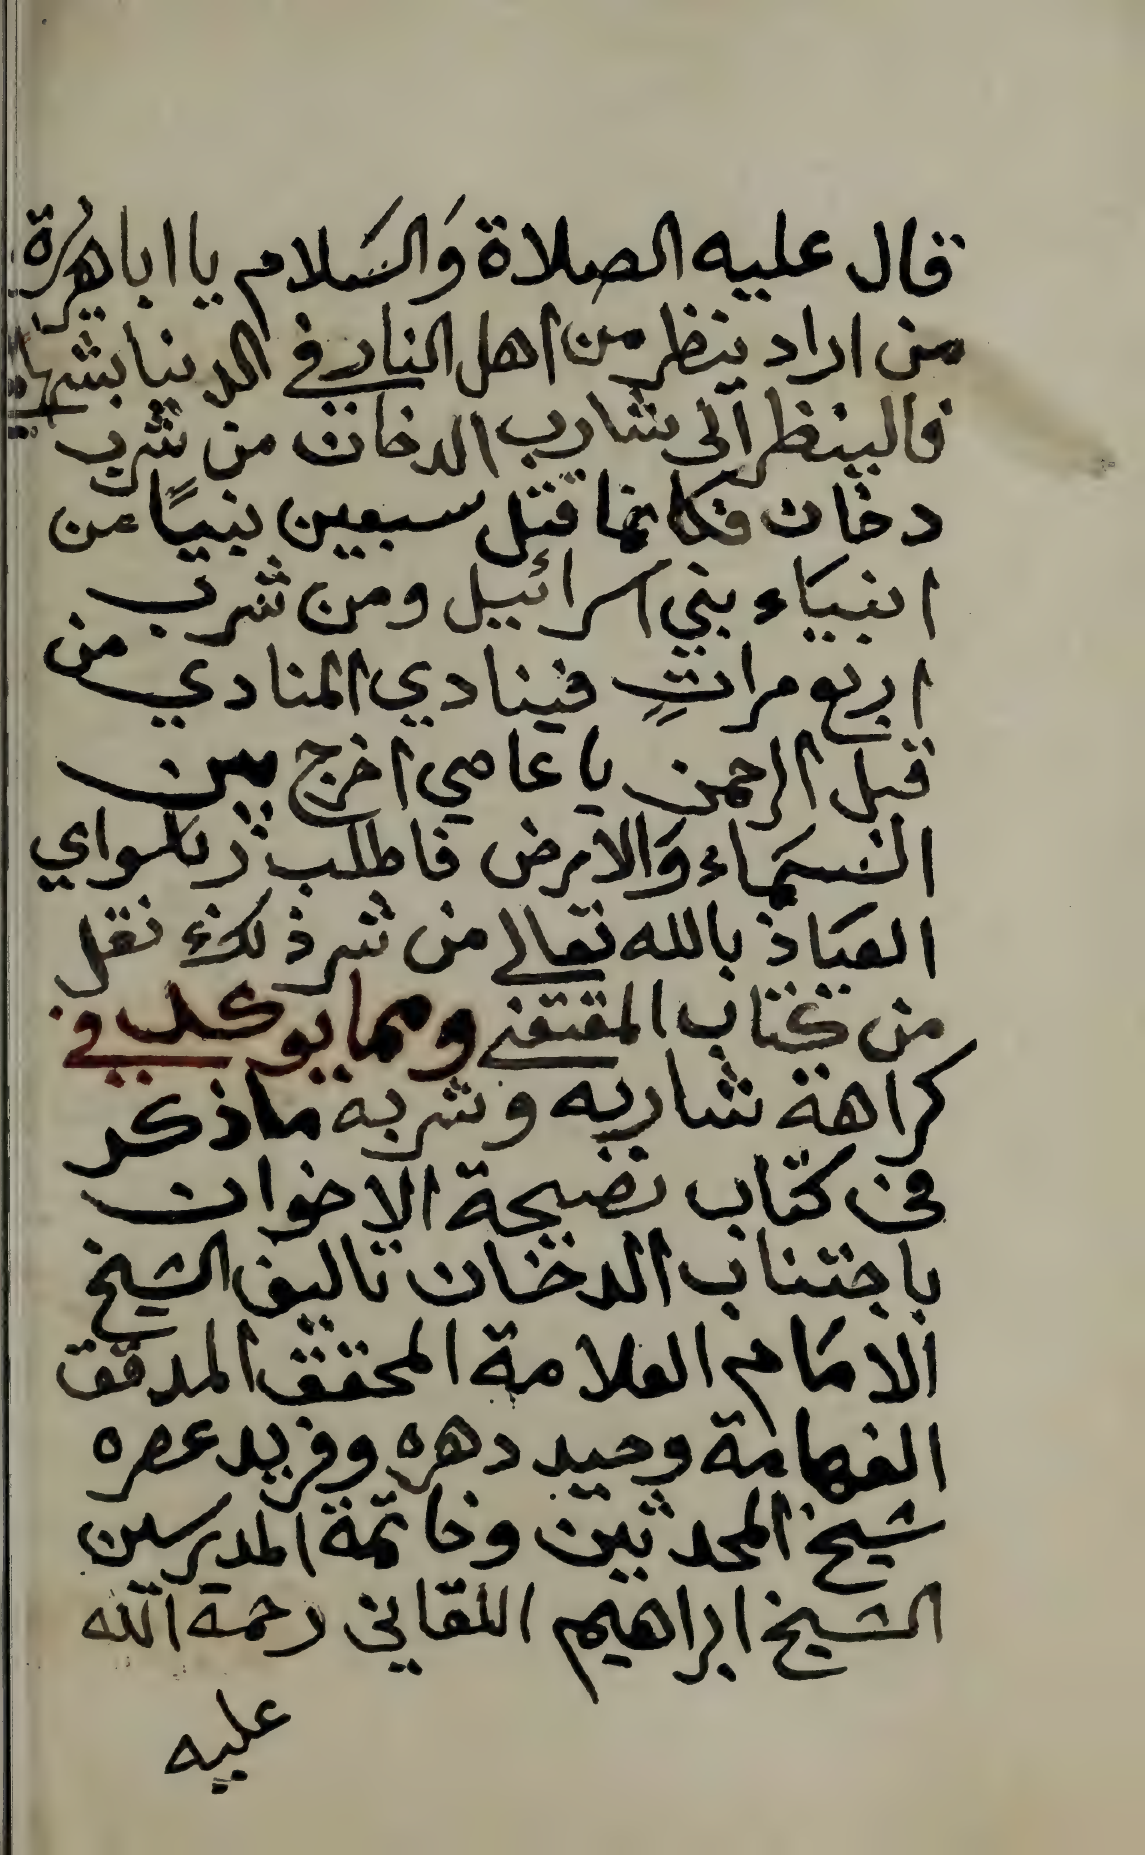 قال عليه الصلاة وَالسَلام يا ابا هريرة
من اراد ينظر من اهل النار في الدنيا
فالينظر الى شارب الدخان من شرب
دخان فكانما قتل سبعين نبيًا من
انبيَاء بني اسرائيل ومن شرب
اربع مراتٍ فينادي المنادي من
قبل الرحمن يا عاصي اخرج بين
السَمَاء وَالارض فاطلب رب سواي
العيَاذ بالله تعالى من شر ذلك نقل
من كتاب المقتفى ومما يوكد في
كراهة شاربه وشربه ماذكر
في كتاب نصيحة الاخوان
باجتناب الدخان تاليف الشيخ
الامَام العلامة المحقق المدقق
الفهامة وحيد دهره وفريد عصره
شيخ المحدثين وخاتمة المدرسين
الشيخ ابراهيم اللقاني رحمة الله
عليه